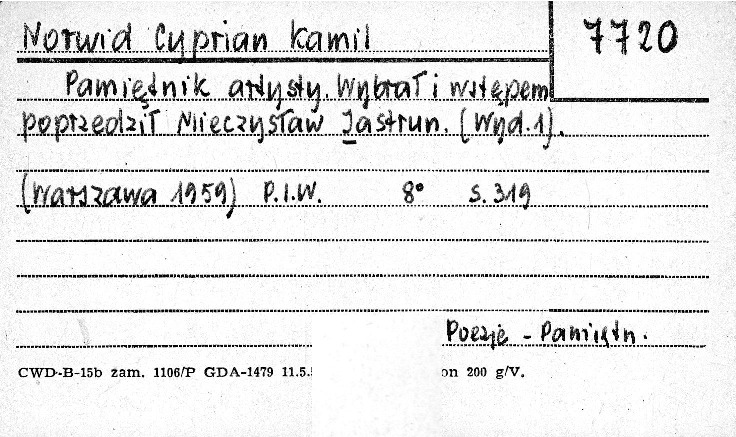 Norwid Cyprian Kamil
7720
Pamiętnik artysty. Wybrał i wstępem
poprzedził Mieczysław Jastrun. (Wyd. 1).
(Warszawa 1959) P.I.W. 8° s. 319
Poezje - Pamiętn.
CWD-B-15b zam. 1106/P GDA-1479 11.5. on 200 g/V.